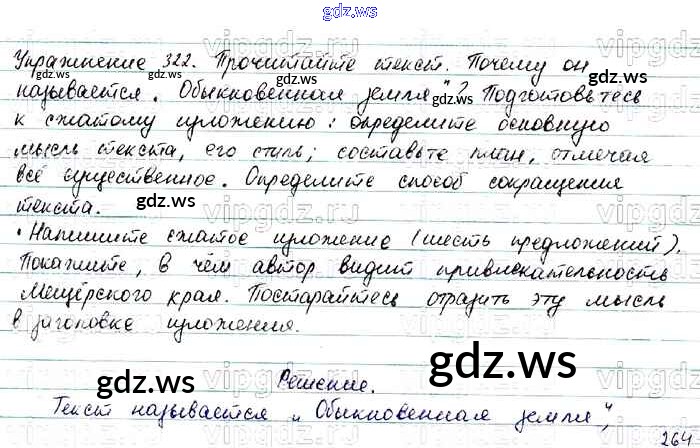 gdz.ws
Упражнение 322. Прочитайте текст. Почему он
называется „Обыкновенная земля"? Подготовьтесь
к сжатому изложению: определите основную
мысль текста, его стиль; составьте план, отмечая
всё существенное. Определите способ сокращения
текста.
• Напишите сжатое изложение (шесть предложений).
Покажите, в чём автор видит привлекательность
Мещёрского края. Постарайтесь отразить эту мысль
в заголовке изложения.
Решение.
Текст называется „Обыкновенная земля",
264